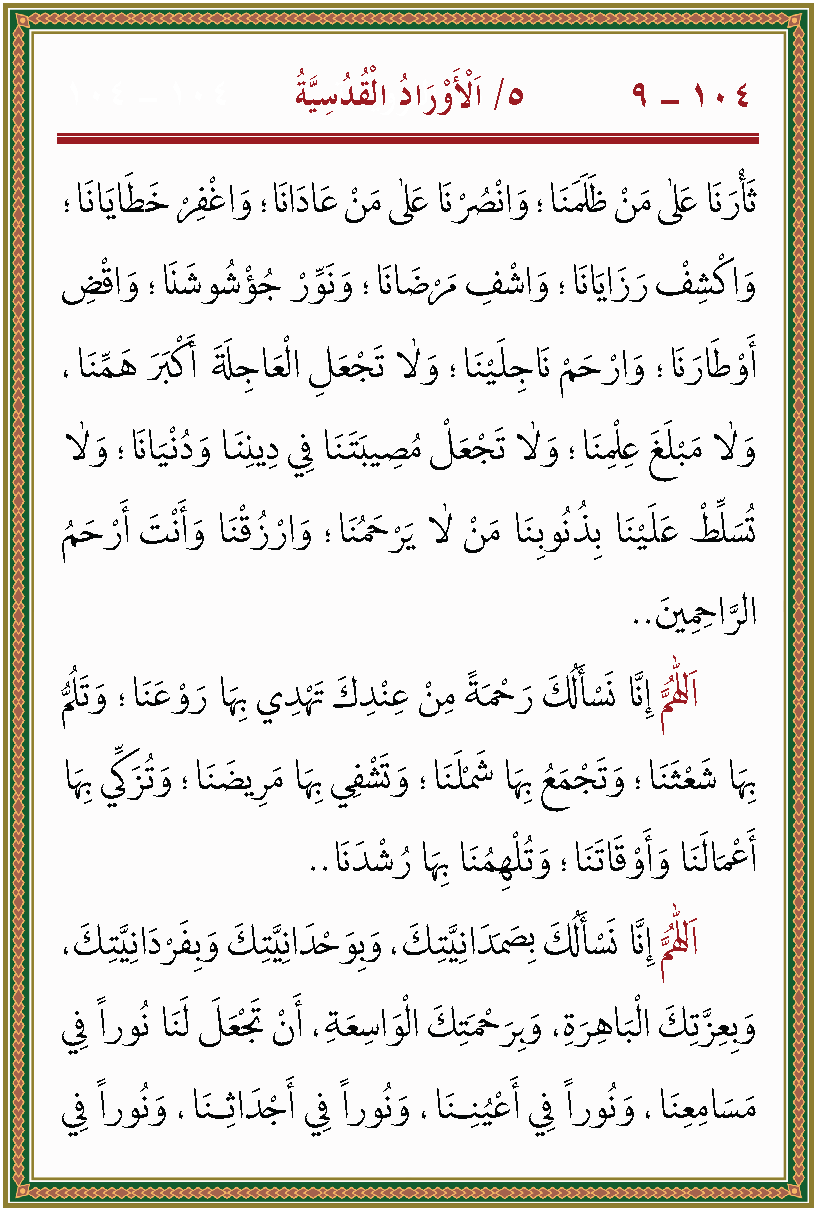 ١٠٤ – ٩ ٥/ اَلْأَوْرَادُ الْقُدُسِيَّةُ
ثَأْرَنَا عَلٰى مَنْ ظَلَمَنَا ؛ وَانْصُرْنَا عَلٰى مَنْ عَادَانَا ؛ وَاغْفِرْ خَطَايَانَا ؛
وَاكْشِفْ رَزَايَانَا ؛ وَاشْفِ مَرْضَانَا ؛ وَنَوِّرْ جُؤْشُوشَنَا ؛ وَاقْضِ
أَوْطَارَنَا ؛ وَارْحَمْ نَاجِلَيْنَا ؛ وَلَا تَجْعَلِ الْعَاجِلَةَ أَكْبَرَ هَمِّنَا ،
وَلَا مَبْلَغَ عِلْمِنَا ؛ وَلَا تَجْعَلْ مُصِيبَتَنَا فِي دِينِنَا وَدُنْيَانَا ؛ وَلَا
تُسَلِّطْ عَلَيْنَا بِذُنُوبِنَا مَنْ لَا يَرْحَمُنَا ؛ وَارْزُقْنَا وَأَنْتَ أَرْحَمُ
الرَّاحِمِينَ..
اَللّٰهُمَّ إِنَّا نَسْأَلُكَ رَحْمَةً مِنْ عِنْدِكَ تَهْدِي بِهَا رَوْعَنَا ؛ وَتَلُمُّ
بِهَا شَعْثَنَا ؛ وَتَجْمَعُ بِهَا شَمْلَنَا ؛ وَتَشْفِي بِهَا مَرِيضَنَا ؛ وَتُزَكِّي بِهَا
أَعْمَالَنَا وَأَوْقَاتَنَا ؛ وَتُلْهِمُنَا بِهَا رُشْدَنَا..
اَللّٰهُمَّ إِنَّا نَسْأَلُكَ بِصَمَدَانِيَّتِكَ، وَبِوَحْدَانِيَّتِكَ وَبِفَرْدَانِيَّتِكَ،
وَبِعِزَّتِكَ الْبَاهِرَةِ، وَبِرَحْمَتِكَ الْوَاسِعَةِ، أَنْ تَجْعَلَ لَنَا نُوراً فِي
مَسَامِعِنَا ، وَنُوراً فِي أَعْيُنِنَا ، وَنُوراً فِي أَجْدَاثِنَا ، وَنُوراً فِي